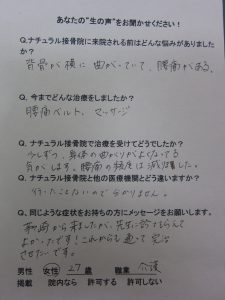 あなたの"生の声"をお聞かせください！
Q.ナチュラル接骨院に来院される前はどんな悩みがありました
か？
背骨が横に曲がっていて、腰痛がある。
Q. 今までどんな治療をしましたか？
腰痛ベルト、マッサージ
Q. ナチュラル接骨院で治療を受けてどうでしたか？
少しずつ、身体の曲がりがよくなってる
気がします。腰痛の頻度は減りました。
Q. ナチュラル接骨院と他の医療機関とどう違いますか？
行ったことないので分かりません。
Q. 同じような症状をお持ちの方にメッセージをお願いします。
から来ましたが、先生に診てもらえて
よかったです！これからも通って完治
させたいです。
男性 女性 27歳 職業 介護
掲載 院内なら 許可する 許可しない